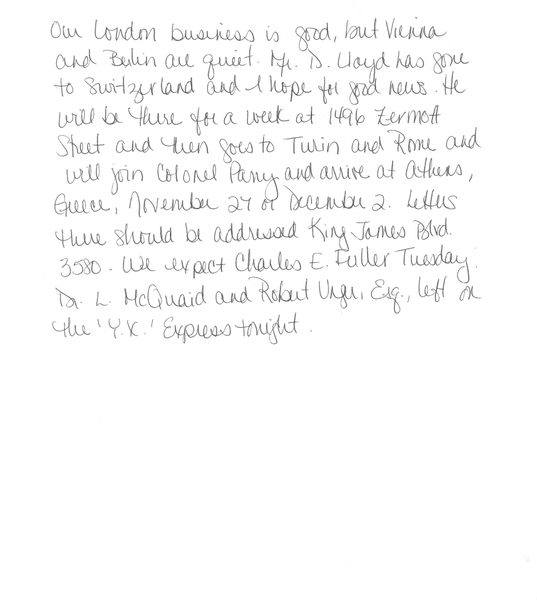 Our London business is good, but Vienna
and Berlin are quiet. Mr. D. Lloyd has gone
to Switzerland and I hope for good news. He
will be there for a week at 1496 Zermott
Street and then goes to Turin and Rome and
will join Colonel Parry and arrive at Athens,
Greece, November 27 or December 2. Letters
there should be addressed King James Blvd.
3580. We expect Charles E. Fuller Tuesday.
Dr. L. McQuaid and Robert Unger, Esq., left on
the 'Y.X.' Express tonight.